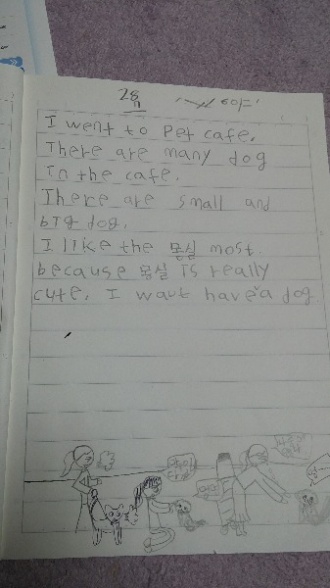 I went to Pet cafe.
There are many dog
in the cafe.
There are small and
big dog.
I like the 몽실 most.
because 몽실 is really
cute. I want have a dog